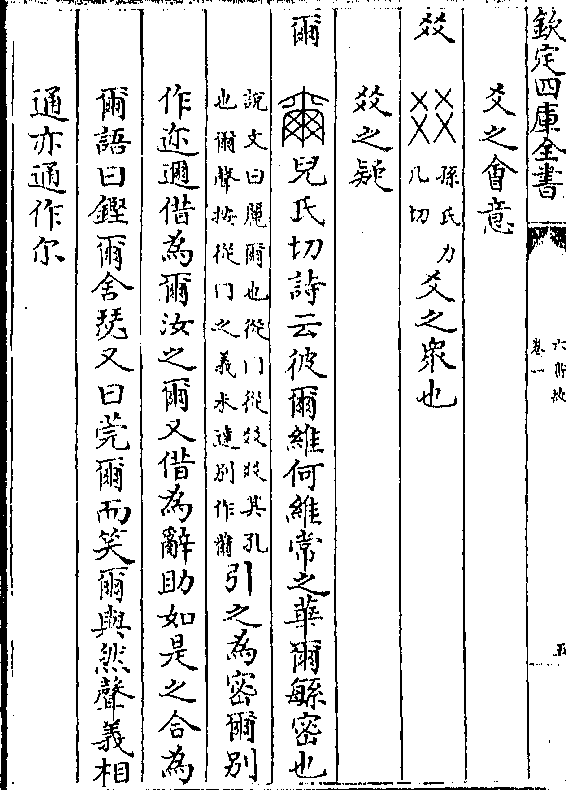 欽定四庫全書
六書故
卷一
五
爻之會意
㸚 孫氏力几切 爻之衆也
㸚之疑
爾 兒氏切詩云彼爾維何維常之華爾緐密也
說文曰麗爾也從冂從㸚㸚其孔
也爾聲按從冂之義未逹别作薾
引之為密爾别
作迩邇借為爾汝之爾又借為辭助如是之合為
爾語曰鏗爾舍瑟又曰莞爾而笑爾與然聲義相
通亦通作尔